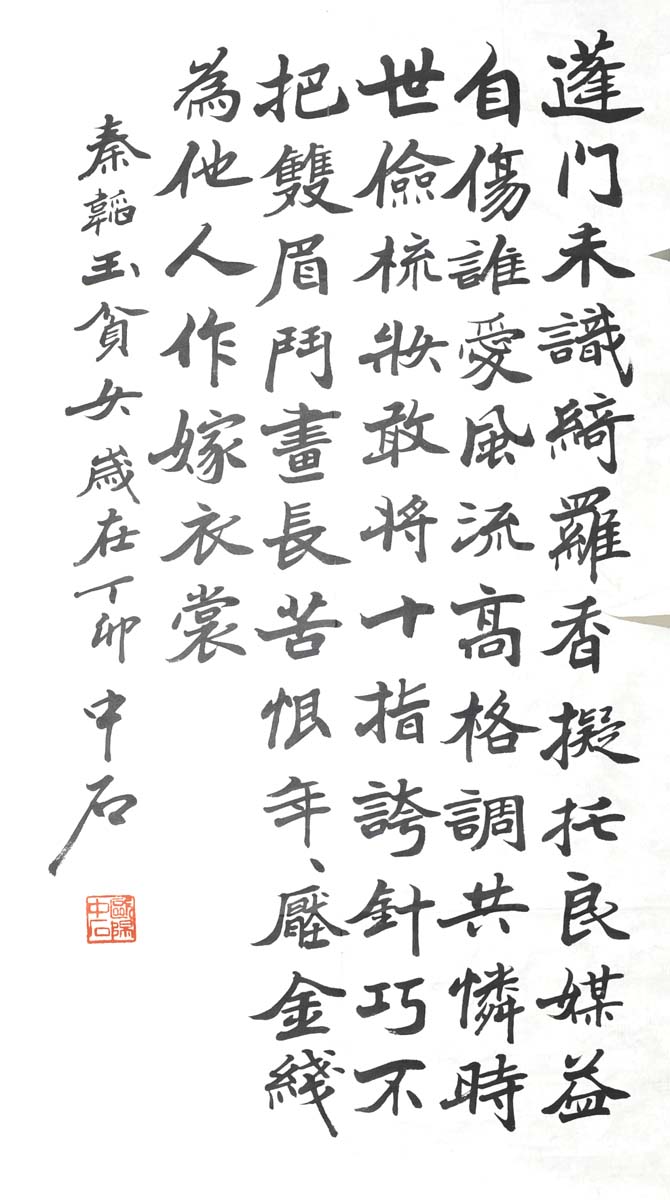 蓬門未識綺羅香擬托良媒益
自傷誰愛風流高格調共憐時
世儉梳妝敢將十指誇針巧不
把雙眉鬥畫長苦恨年、壓金綫
為他人作嫁衣裳
秦韜玉貧女歲在丁卯中石
歐陽中石